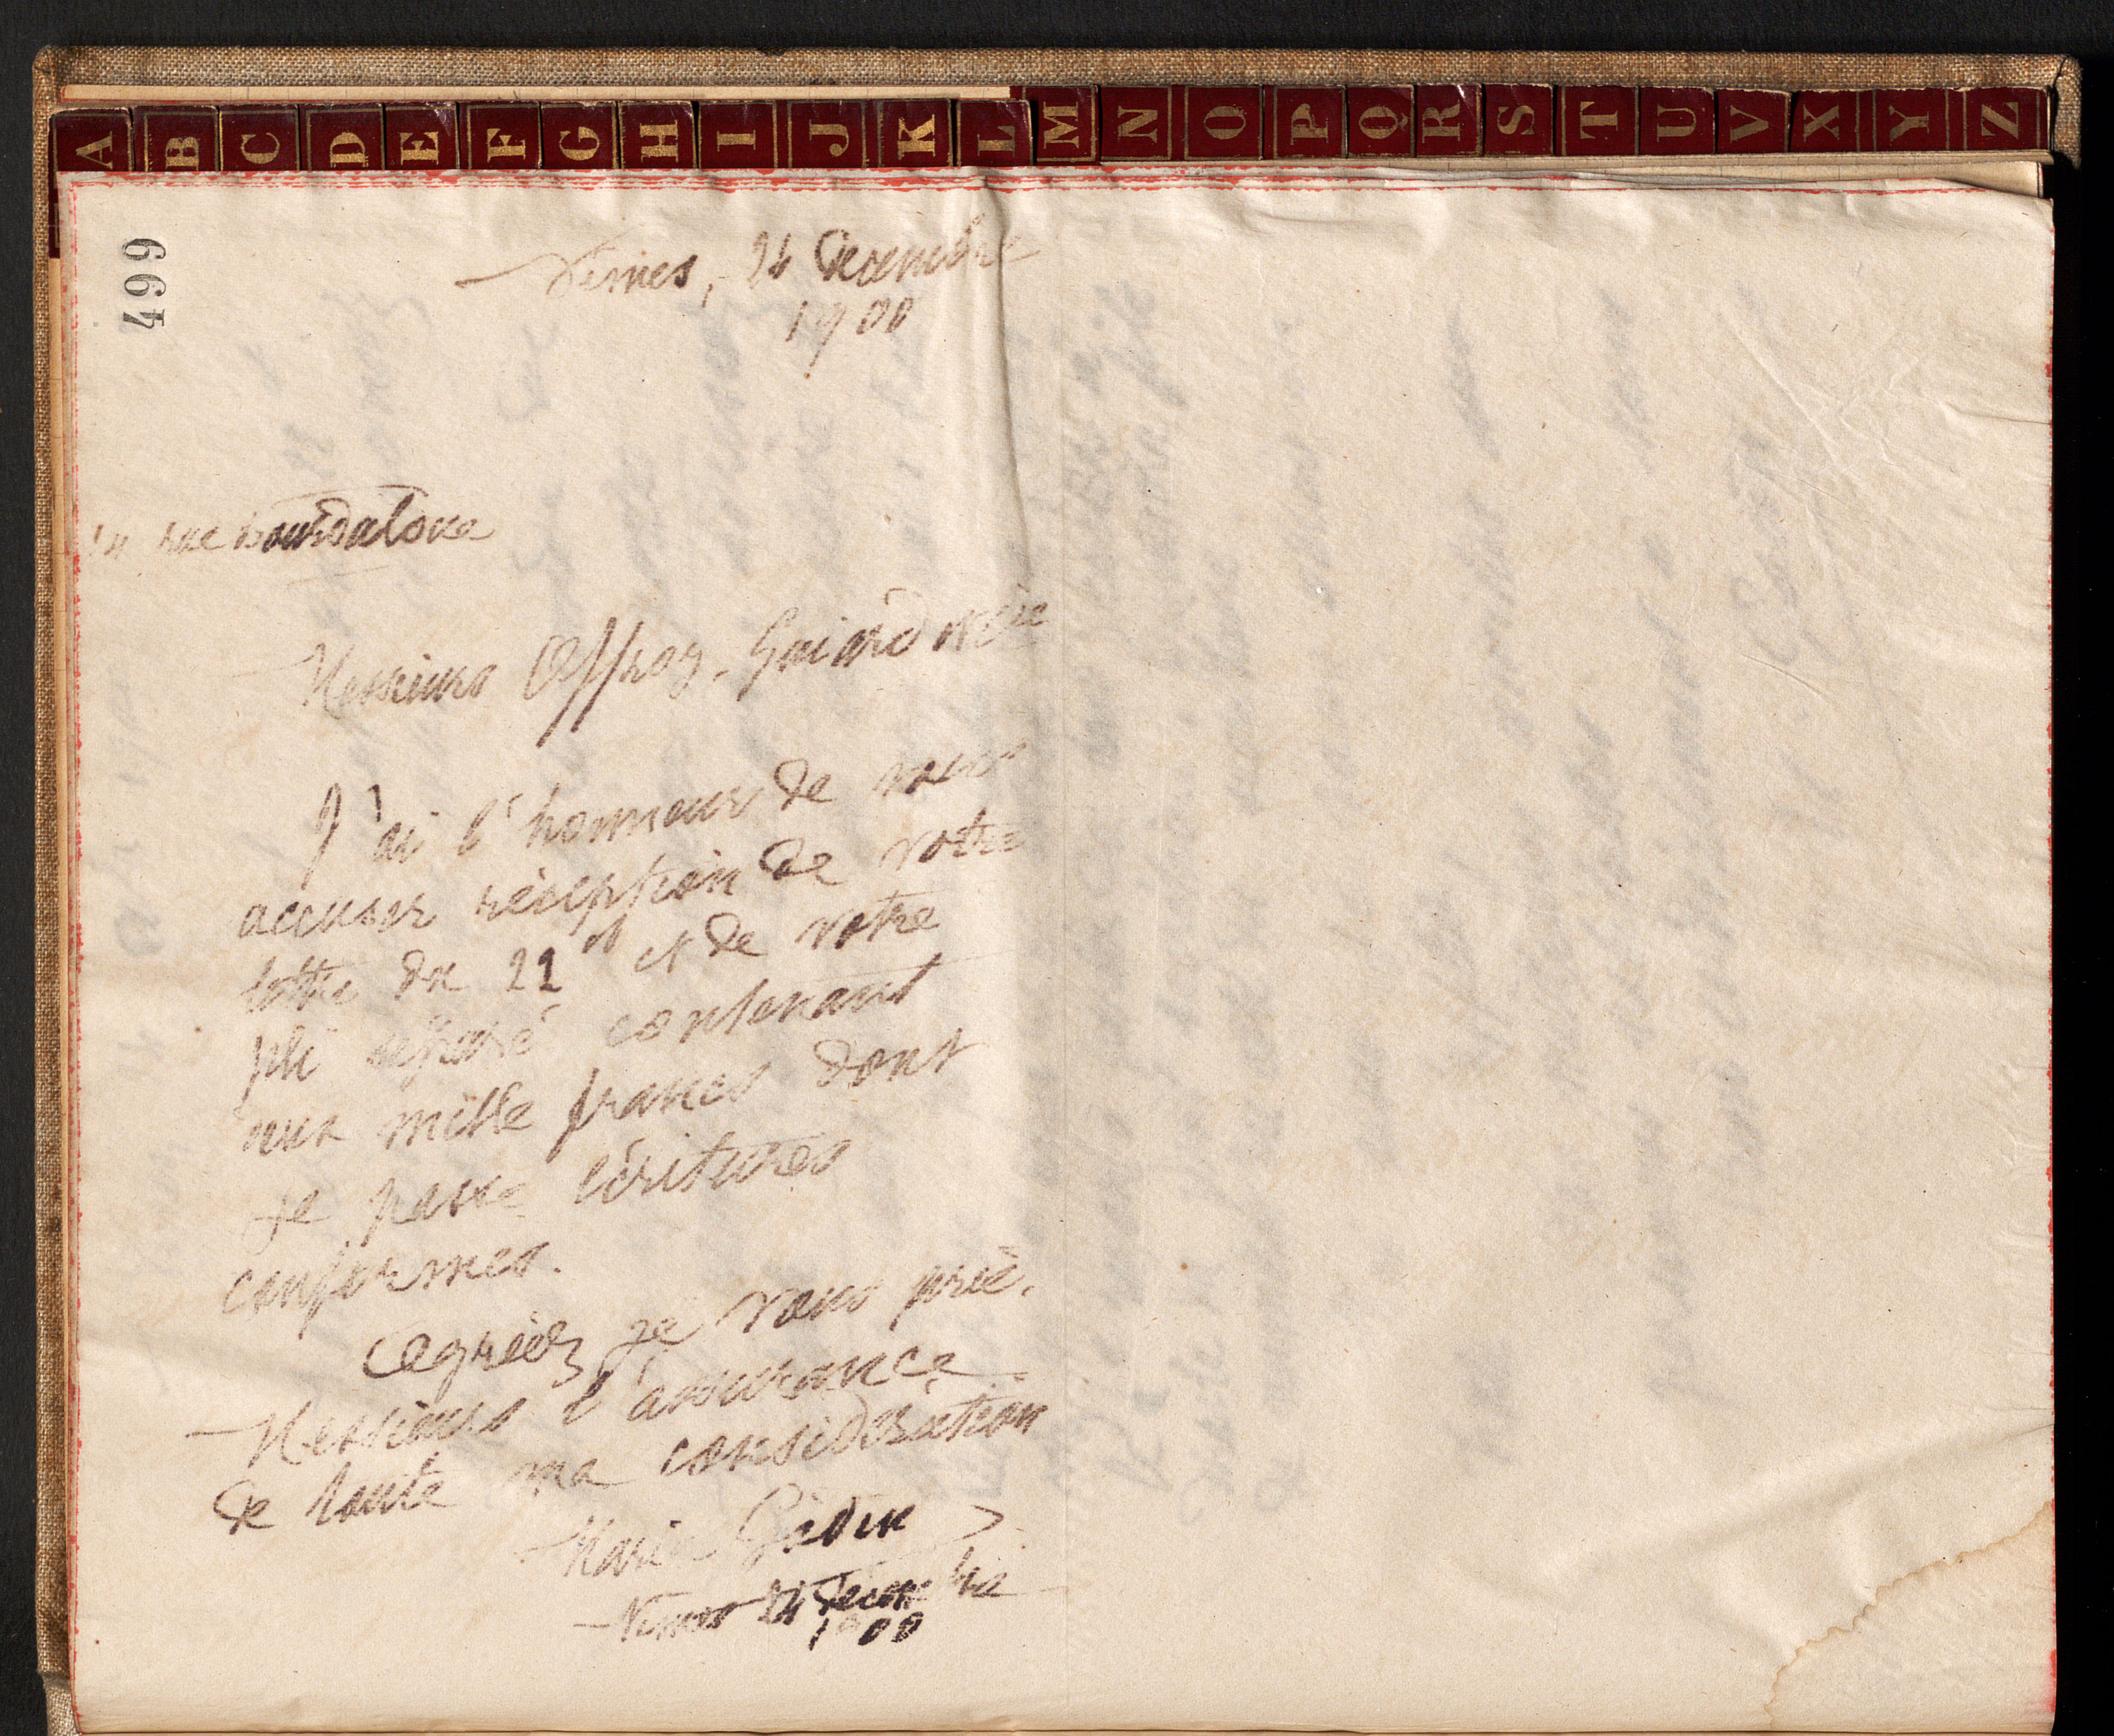 A B C D E F G H I J K L M N O P Q R S T U V X Y Z
499
Nimes, 24 Decembre
1900
14 rue Bourdaloue
Messieurs Offroy, Guiard & Cie
J'ai l'honneur de vous
accuser réception de votre
lettre du 22 ct et de votre
pli séparé contenant
mille francs dont
je passe écritures
conformes.
Agréez je vous prie,
Messieurs l'assurance
de toute ma considération
Marie Godin
Nimes 24 décembre
1900